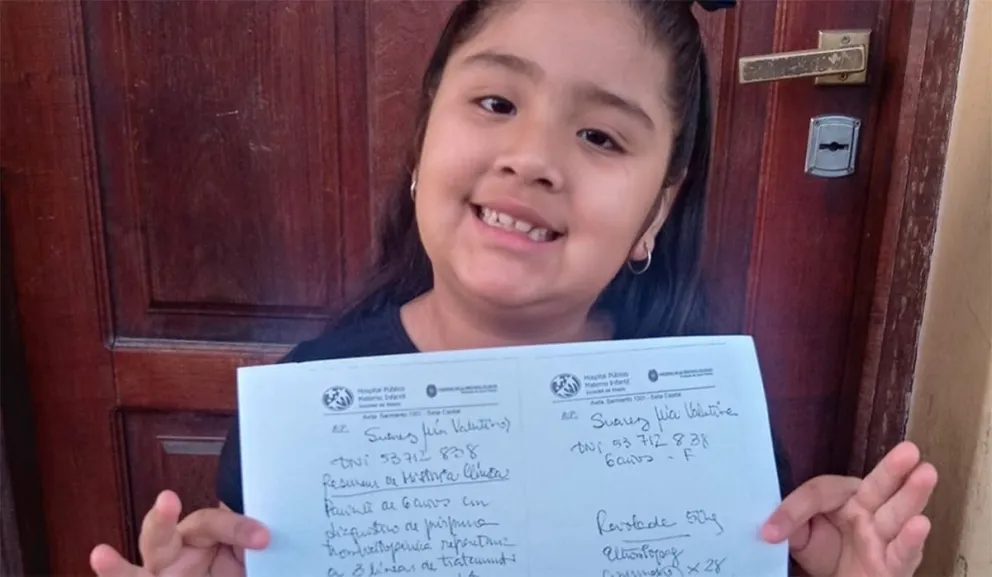 Hospital Público
Materno Infantil
Avda. Sarmiento 1301 - Salta Capital
Suarez Mía Valentina
DNI 53 712 838
Resumen de Historia Clínica
Paciente de 6 años con
diagnóstico de púrpura
trombocitopénica
a 3 líneas de tratamiento
Hospital Público
Materno Infantil
Avda. Sarmiento 1301 - Salta Capital
Suarez Mía Valentina
DNI 53 712 838
6 años - F
Revolade 50mg
Eltrombopag
x 28